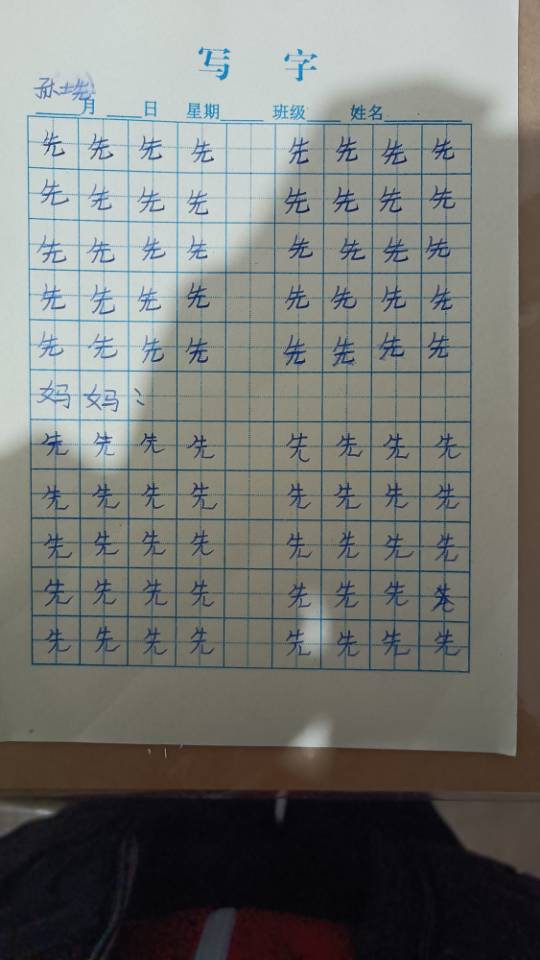 写 字
孙士先
月 日 星期 班级 姓名
先 先 先 先 先 先 先 先
先 先 先 先 先 先 先 先
先 先 先 先 先 先 先 先
先 先 先 先 先 先 先 先
先 先 先 先 先 先 先 先
妈 妈：
先 先 先 先 先 先 先 先
先 先 先 先 先 先 先 先
先 先 先 先 先 先 先 先
先 先 先 先 先 先 先 先
先 先 先 先 先 先 先 先